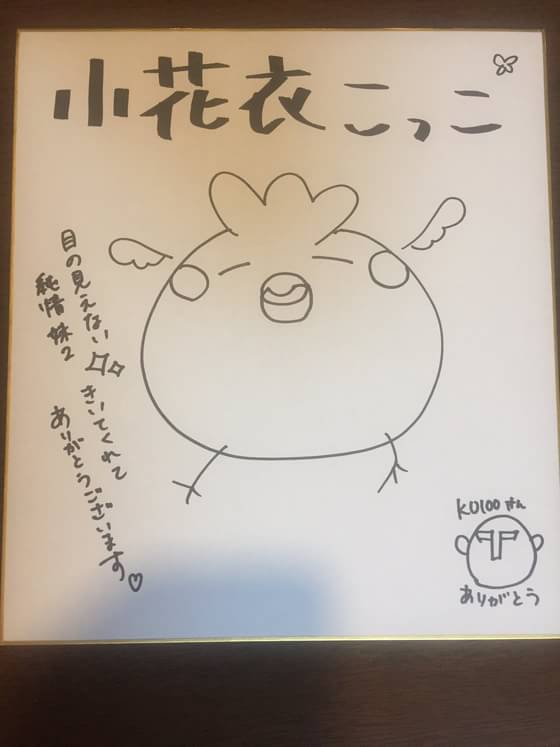 小花衣こっこ
目の見えない
純情妹2
きいてくれて
ありがとうございます♡
KU100さん
ありがとう